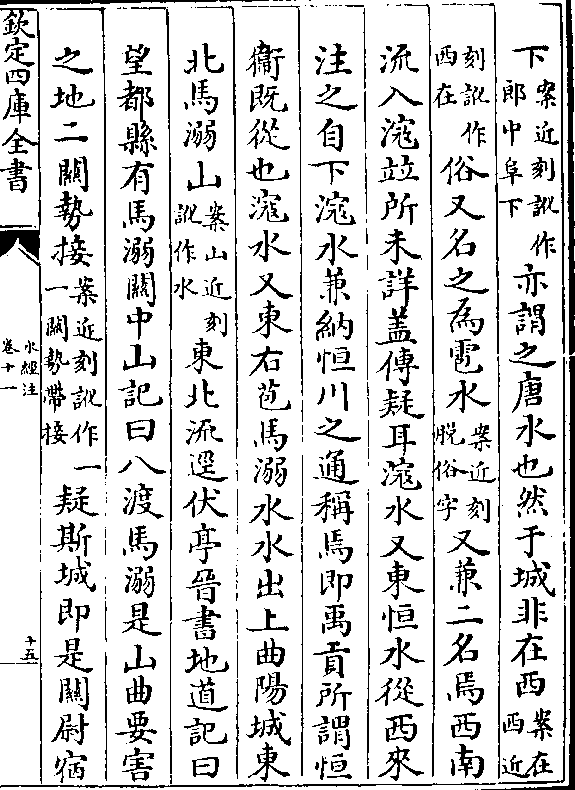 下案近刻訛作郎中阜下亦謂之唐水也然于城非在西案在西近
刻訛作西在俗又名之為雹水案近刻脫俗字又兼二名焉西南
流入滱竝所未詳蓋傳疑耳滱水又東恒水從西來
注之自下滱水兼納恒川之通稱焉即禹貢所謂恒
衞既從也滱水又東右苞馬溺水水出上曲陽城東
北馬溺山案山近刻訛作水東北流逕伏亭晉書地道記曰
望都縣有馬溺關中山記曰八渡馬溺是山曲要害
之地二關勢接案近刻訛作一一關勢帶接疑斯城即是關尉宿
欽定四庫全書
水經注
卷十一
十五